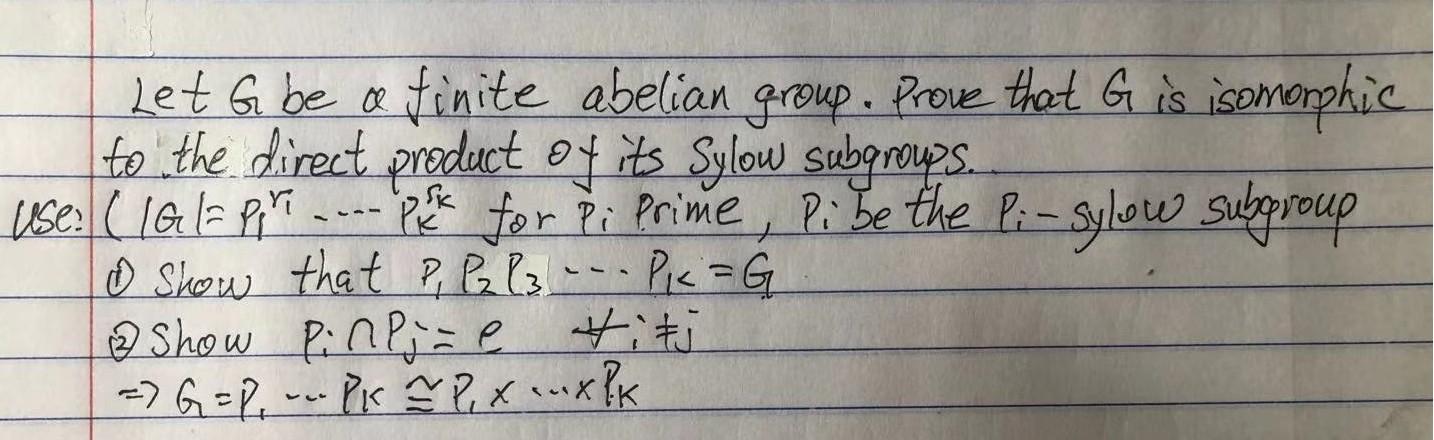 Let G be a finite abelian group. Prove that G is isomorphic
to the direct product of its Sylow subgroups.
Use: ( |G| = P₁^r₁ ---- Pₖ^rₖ for Pi Prime, Pi be the Pi - sylow subgroup
① Show that P₁ P₂ P₃ --- Pₖ = G
② Show Pi ∩ Pj = e ∀ i ≠ j
=> G = P₁ --- Pₖ ≅ P₁ x ... x Pₖ